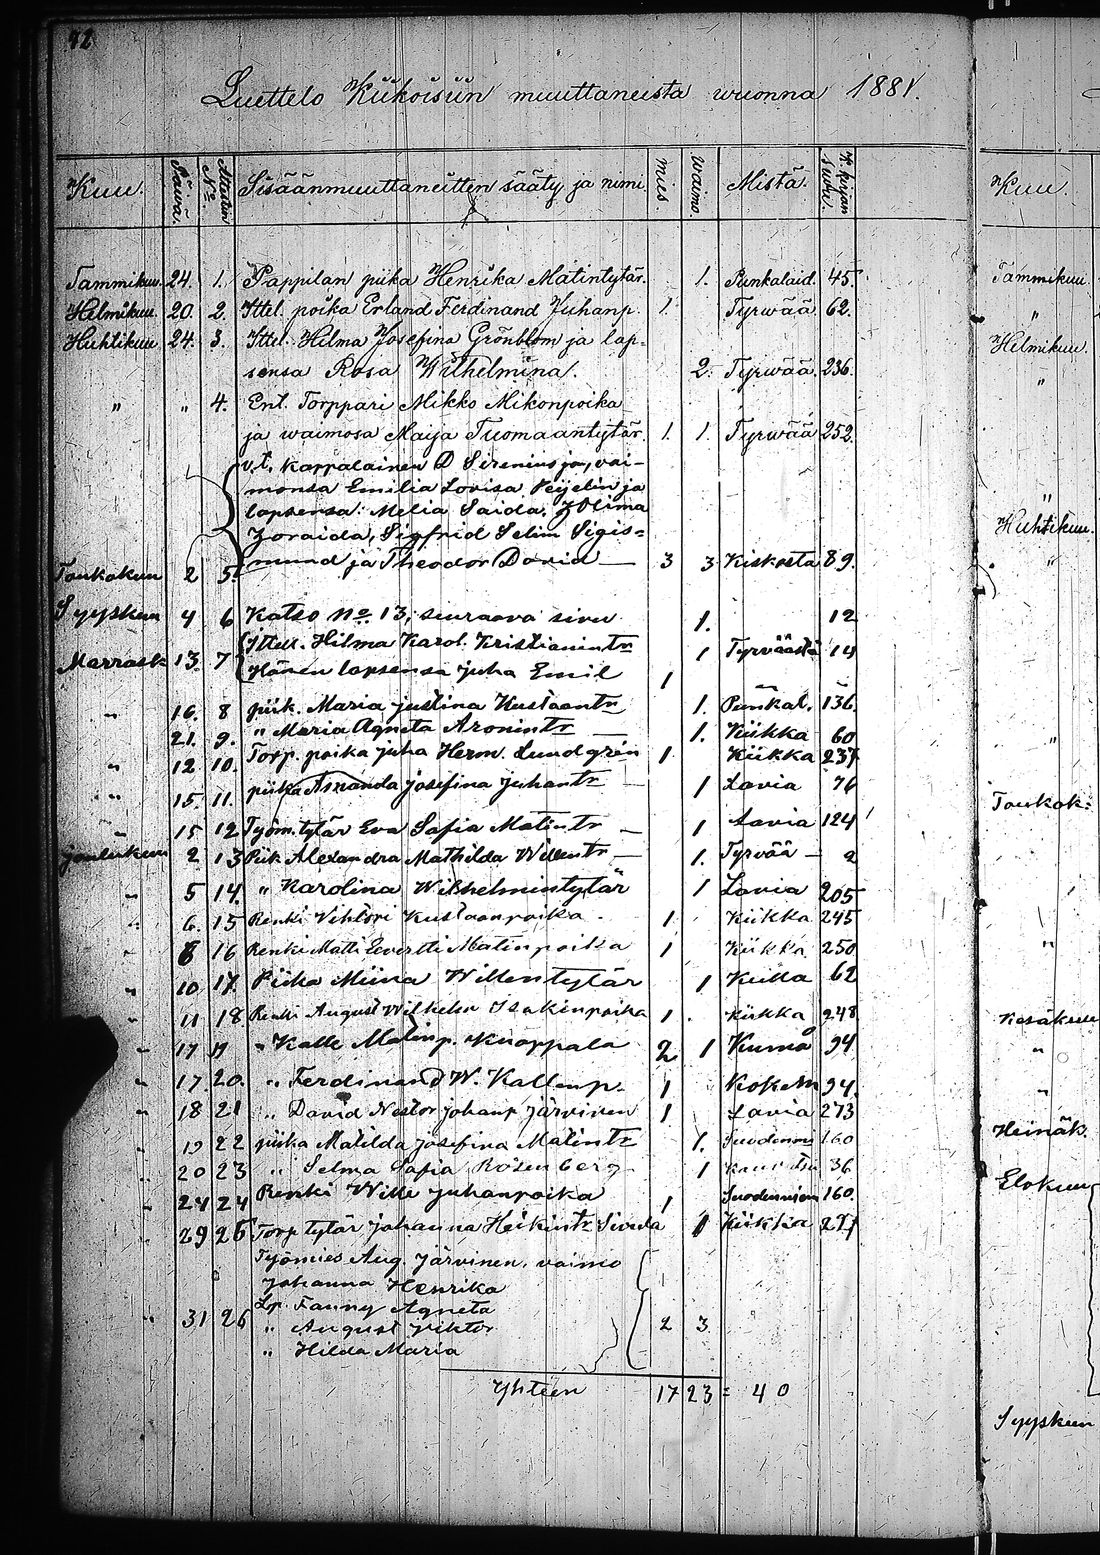 42
Luettelo Kiikoisiin muuttaneista wuonna 1881.
Kuu. Päivä. Attestin No. Sisäänmuuttaneitten sääty ja nimi. mies. waimo. Mistä. K. kirjan sivu.
Tammikuu. 24. 1. Pappilan piika Henrika Matintytär. 1. Punkalaid. 45.
Helmikuu. 20. 2. Ittel. poika Erland Ferdinand Juhanp. 1. Tyrwää 62.
Huhtikuu 24. 3. Ittel. Hilma Josefina Grönblom ja lap-
sensa Rosa Wilhelmina. 2. Tyrwää. 236.
" " 4. Ent. Torppari Mikko Mikonpoika
ja waimosa Maija Tuomaantytär. 1. 1. Tyrwää 252.
v.t. Kappalainen D Sirenius ja vai-
monsa Emilia Lovisa Peijelin ja
lapsensa: Melia Saida, Zolima
Zoraida, Sigfrid Selim Sigis=
Toukokuu 2 5. mund ja Theodor David — 3 3 Kiskosta 89.
Syyskuu 4 6 Katso No. 13, seuraava sivu 1. 12
Ittell. Hilma Karol. Kristianintr
Marrask 13. 7 Hänen lapsensa Juha Emil 1 1 Tyrväästä 14
" 16. 8 piik. Maria Justina Kustaantr 1. Punkal. 136.
21. 9. " Maria Agneta Aronintr — 1. Kiikka 60
" 12 10. Torp. poika Juha Herm. Lundgrén 1. Kiikka 237
" 15. 11. piika Amanda Josefina Juhantr — 1 Lavia 76
15 12 Työm. tytär Eva Sofia Matintr — 1 Lavia 124
Joulukuu 2 13 Piik Alexandra Mathilda Willentr — 1. Tyrvää — 2
" 5 14. " Karolina Wilhelmintytär 1 Lavia 205
" 6. 15 Renki Vihtori Kustaanpoika. 1 Kiikka 245
" 8 16 Renki Matti Eevertti Matinpoika 1 Kiikka 250
" 10 17. Piika Miina Willentytär 1 62
" 11 18 Renki August Wilhelm Isakinpoika 1. Kiikka 248
" 17 19 " Kalle Matinp. Knaappala 2 1 Kumo 94
" 17. 20. " Ferdinand W. Kallenp. 1 94.
" 18 21 " David Nestor Johanp Järvinen 1 Lavia 273
19 22 piika Matilda Josefina Matintr 1. Suodenni 160
20 23 " Selma Sofia Rosenberg 1 36
" 24 24 Renki Wille Juhanpoika 1 Suodenniemi 160.
29 25 Torp tytär Johanna Heikintr 1 Kiikka 271
Työmies Aug. Järvinen, vaimo
Johanna Henrika
Lp. Fanny Agneta
31 26 " August Viktor 2 3
" Hilda Maria
Yhteen 17 23 = 40
Kuu.
Tammikuu
"
Helmikuu.
"
"
Huhtikuu.
"
"
Toukok:
"
Kesäkuu
"
"
Heinäk.
Elokuu
Syyskuu